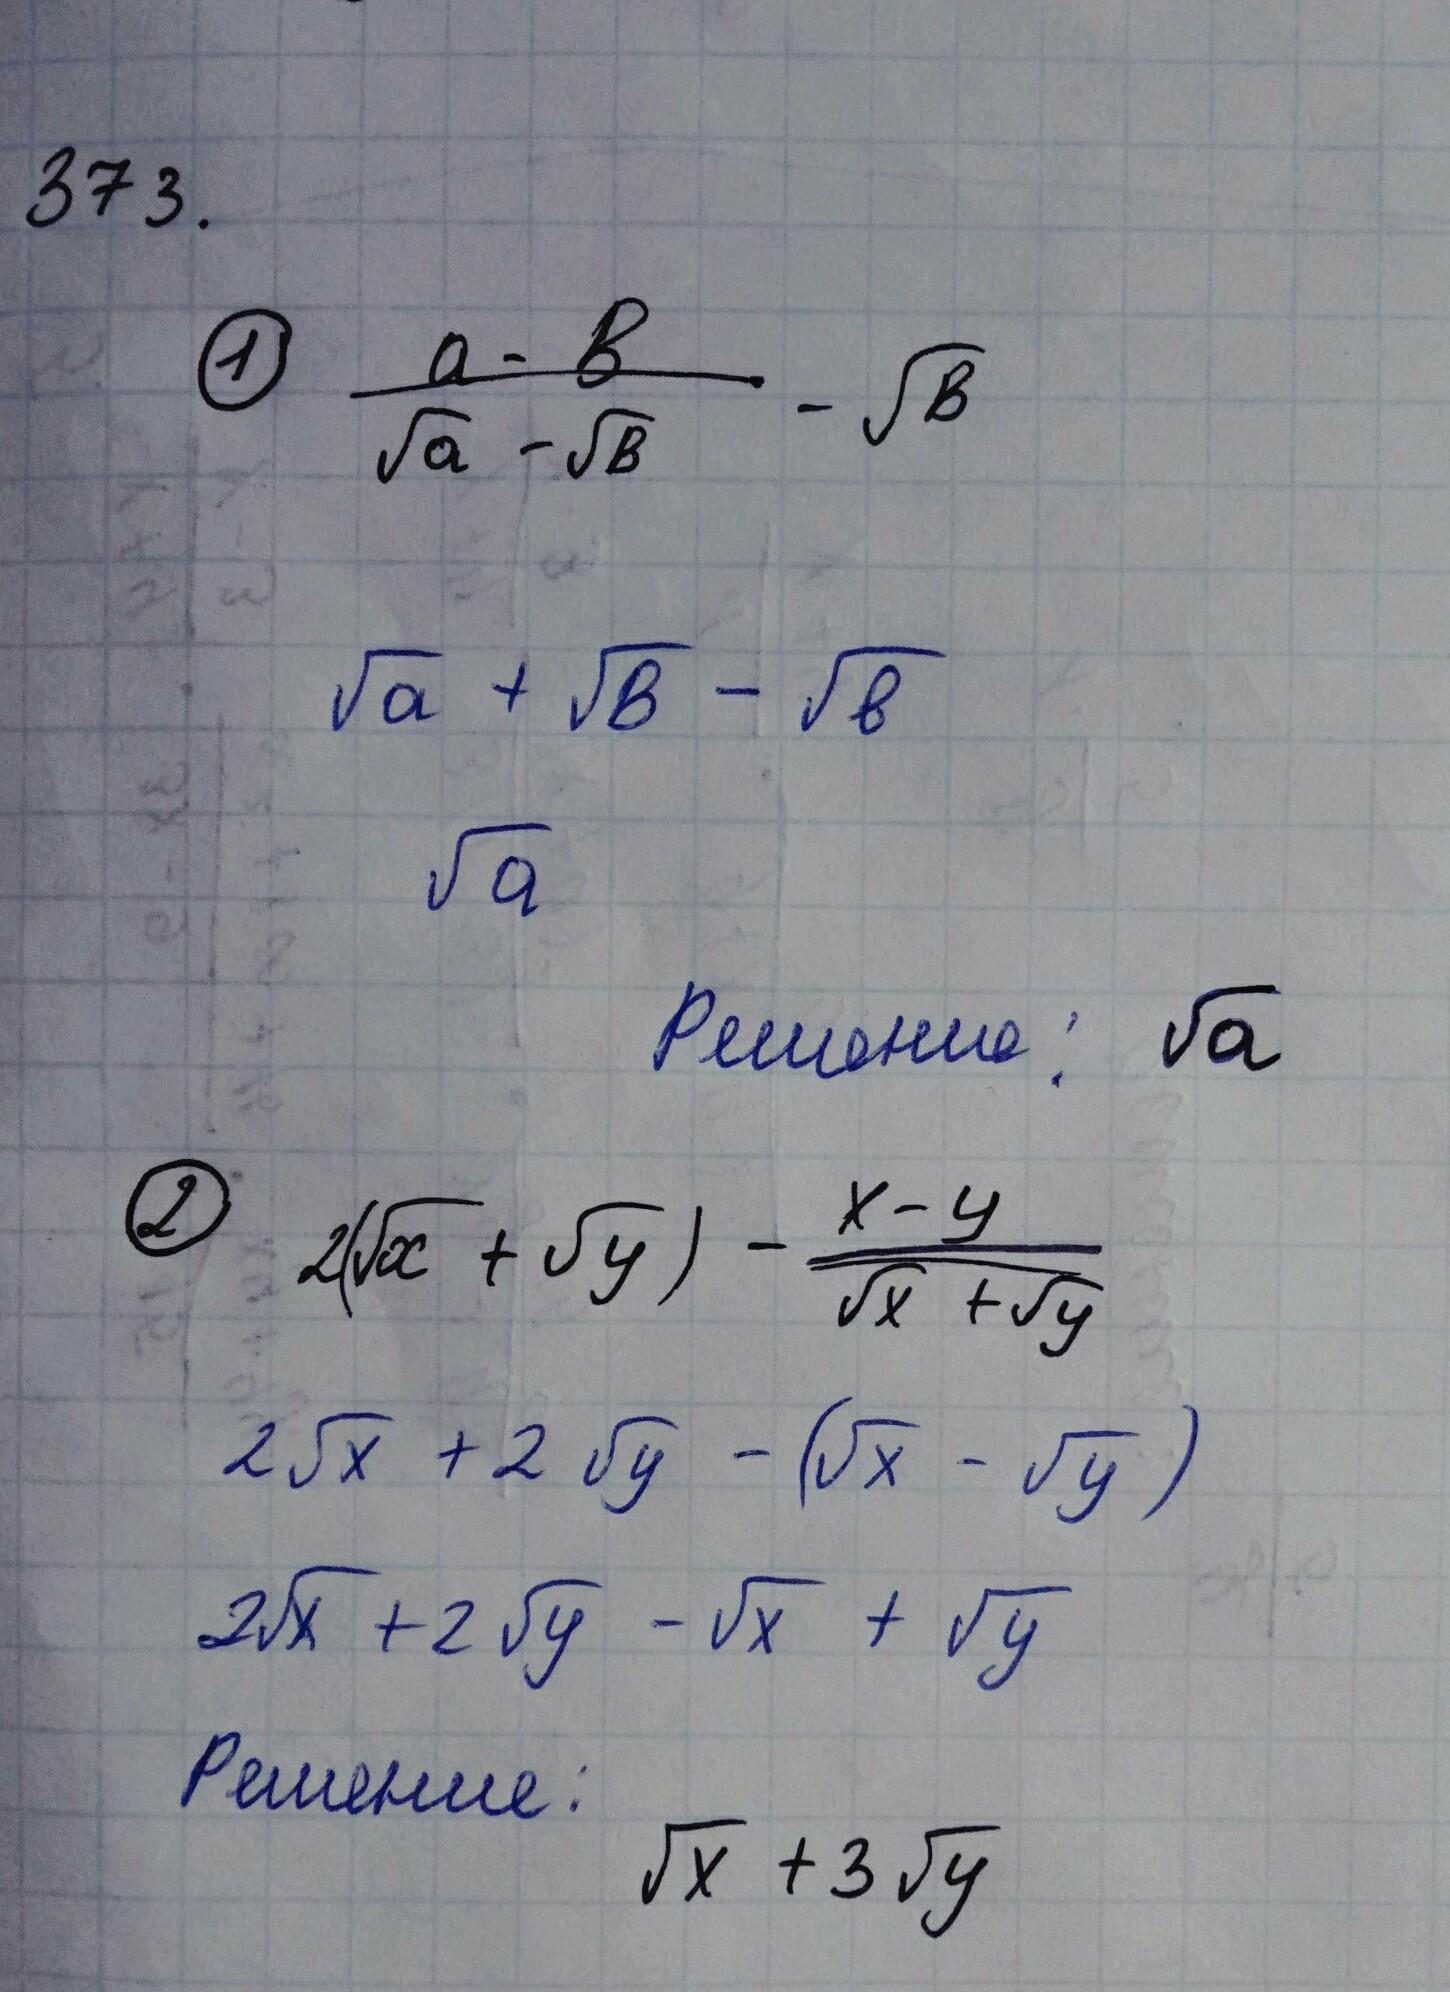 373.
① (a - в)/(√a - √в) - √в
√a + √в - √в
√a
Решение: √a
② 2(√x + √y) - (x - y)/(√x + √y)
2√x + 2√y - (√x - √y)
2√x + 2√y - √x + √y
Решение:
√x + 3√y